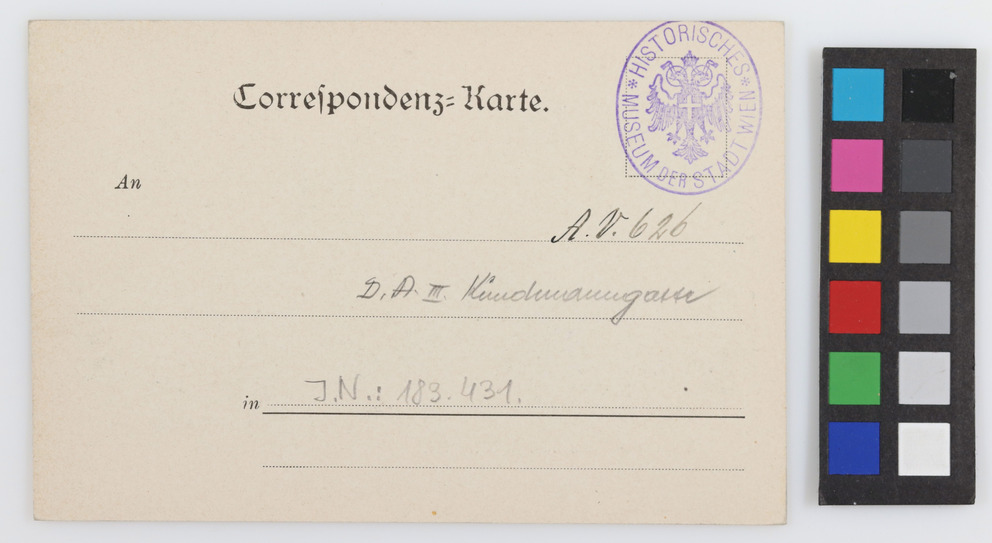 Correſpondenz-Karte.
* HISTORISCHES *
MUSEUM DER STADT WIEN
An
A.V. 626
D.A. III. Kundmanngasse
in J.N.: 183.431.